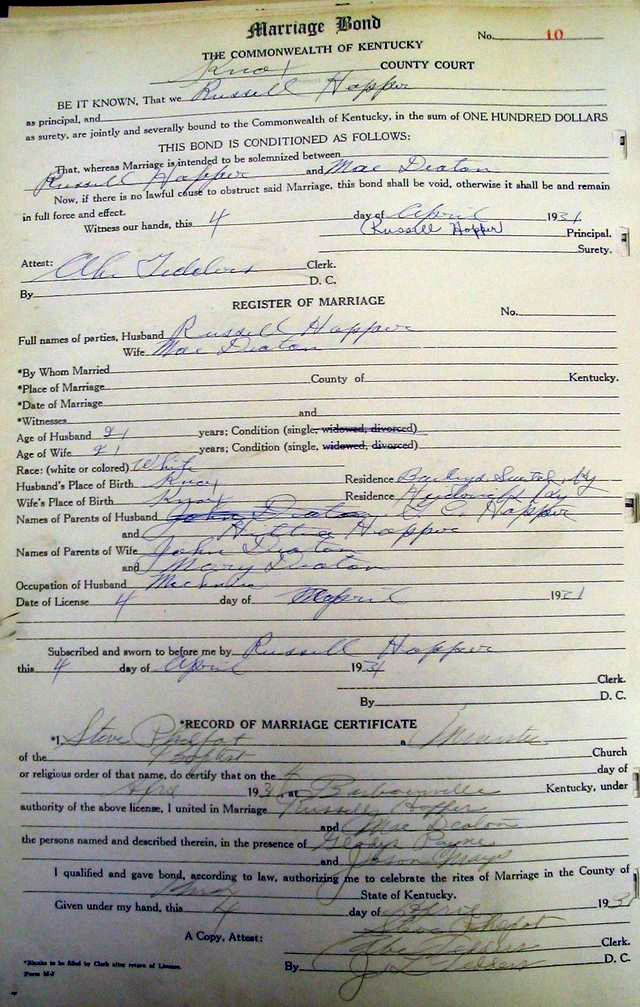 Marriage Bond
No. 10
THE COMMONWEALTH OF KENTUCKY
Knox COUNTY COURT
BE IT KNOWN, That we Russell Hopper
as principal, and
as surety, are jointly and severally bound to the Commonwealth of Kentucky, in the sum of ONE HUNDRED DOLLARS
THIS BOND IS CONDITIONED AS FOLLOWS:
That, whereas Marriage is intended to be solemnized between
Russell Hopper and Mae Deaton
Now, if there is no lawful cause to obstruct said Marriage, this bond shall be void, otherwise it shall be and remain
in full force and effect.
Witness our hands, this 4 day of April 1931
Russell Hopper Principal.
Surety.
Attest: Clerk.
By D. C.
REGISTER OF MARRIAGE
No.
Full names of parties, Husband Russell Hopper
Wife Mae Deaton
*By Whom Married
*Place of Marriage County of Kentucky.
*Date of Marriage
*Witnesses and
Age of Husband 21 years; Condition (single, widowed, divorced)
Age of Wife 21 years; Condition (single, widowed, divorced)
Race: (white or colored) White
Husband's Place of Birth Knox Residence Ky
Wife's Place of Birth Knox Residence Ky
Names of Parents of Husband John Deaton Hopper
and Hopper
Names of Parents of Wife John Deaton
and Mary Deaton
Occupation of Husband
Date of License 4 day of April 1931
Subscribed and sworn to before me by Russell Hopper
this 4 day of April 1931
Clerk.
By D. C.
*RECORD OF MARRIAGE CERTIFICATE
*I, Steve Philpot a Minister
of the Baptist Church
or religious order of that name, do certify that on the 4 day of
April 1931, at Barbourville Kentucky, under
authority of the above license, I united in Marriage Russell Hopper
and Mae Deaton
the persons named and described therein, in the presence of Gladys Payne
and Mays
I qualified and gave bond, according to law, authorizing me to celebrate the rites of Marriage in the County of
Knox State of Kentucky.
Given under my hand, this 4 day of April 1931
Steve Philpot
A Copy, Attest: Clerk.
By D. C.
*Blanks to be filled by Clerk after return of License.
Form M-J